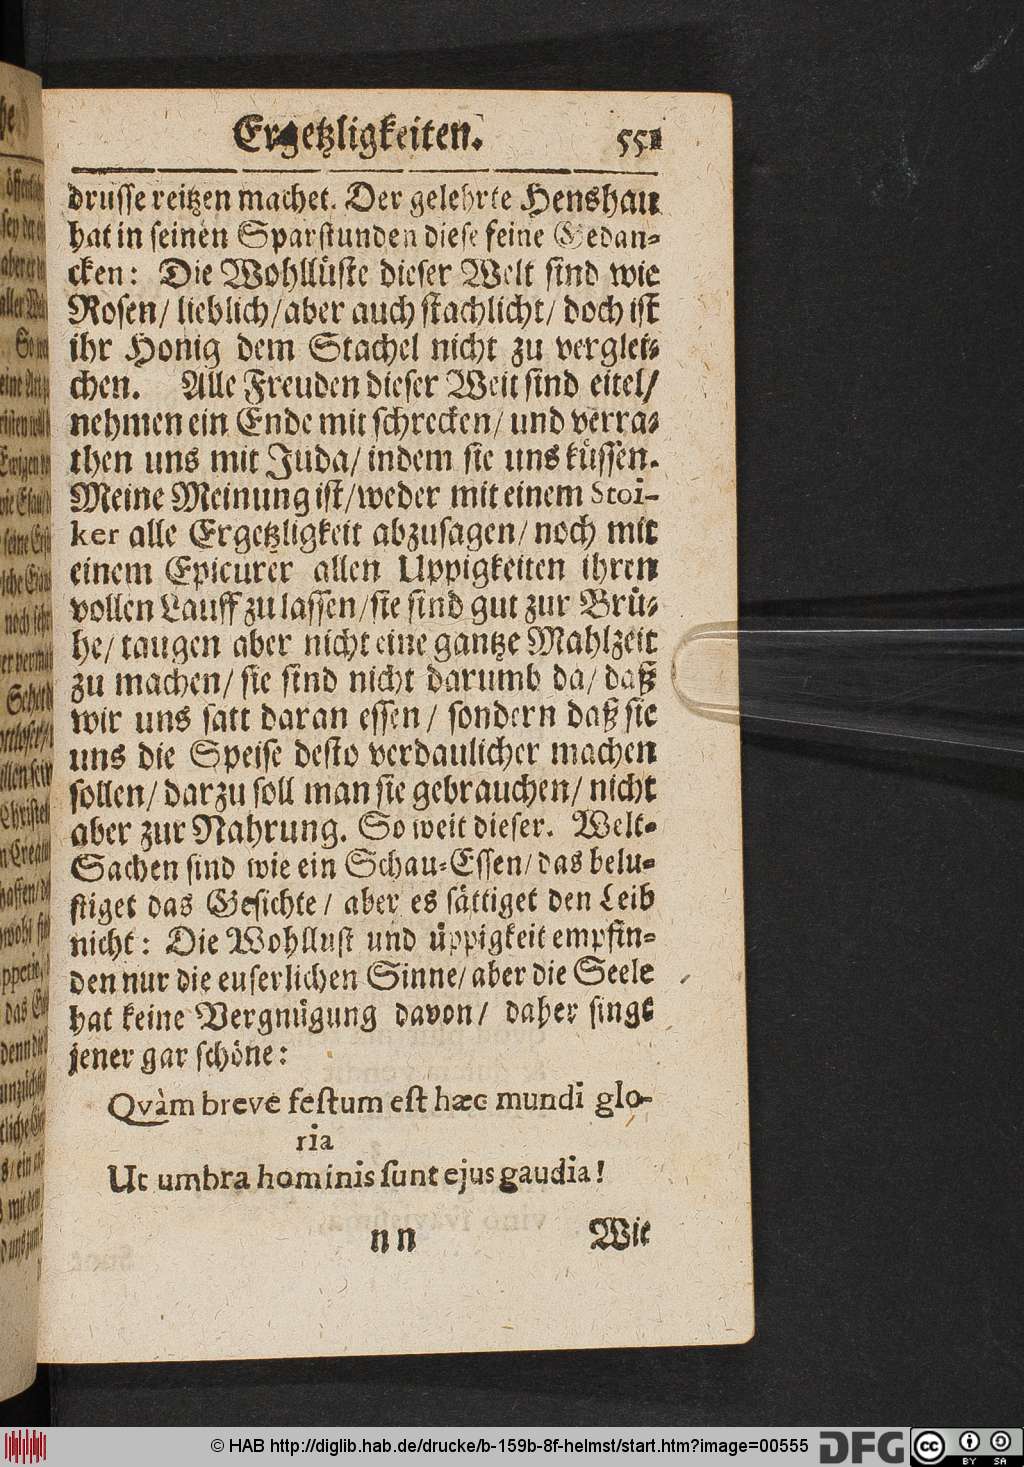 Ergetzligkeiten. 551
drusse reitzen machet. Der gelehrte Henshau
hat in seinen Sparstunden diese feine Gedan-
cken: Die Wohllüste dieser Welt sind wie
Rosen/ lieblich/ aber auch stachlicht/ doch ist
ihr Honig dem Stachel nicht zu verglei-
chen. Alle Freuden dieser Welt sind eitel/
nehmen ein Ende mit schrecken/ und verra-
then uns mit Juda/ indem sie uns küssen.
Meine Meinung ist/ weder mit einem Stoi-
ker alle Ergetzligkeit abzusagen/ noch mit
einem Epicurer allen Uppigkeiten ihren
vollen Lauff zu lassen/ sie sind gut zur Brü-
he/ taugen aber nicht eine gantze Mahlzeit
zu machen/ sie sind nicht darumb da/ daß
wir uns satt daran essen/ sondern daß sie
uns die Speise desto verdaulicher machen
sollen/ darzu soll man sie gebrauchen/ nicht
aber zur Nahrung. So weit dieser. Welt-
Sachen sind wie ein Schau-Essen/ das belu-
stiget das Gesichte/ aber es sättiget den Leib
nicht: Die Wohllust und üppigkeit empfin-
den nur die euserlichen Sinne/ aber die Seele
hat keine Vergnügung davon/ daher singt
jener gar schöne:
Qvàm breve festum est hæc mundi glo-
ria
Ut umbra hominis sunt ejus gaudia!
nn Wie
© HAB http://diglib.hab.de/drucke/b-159b-8f-helmst/start.htm?image=00555 DFG cc BY SA